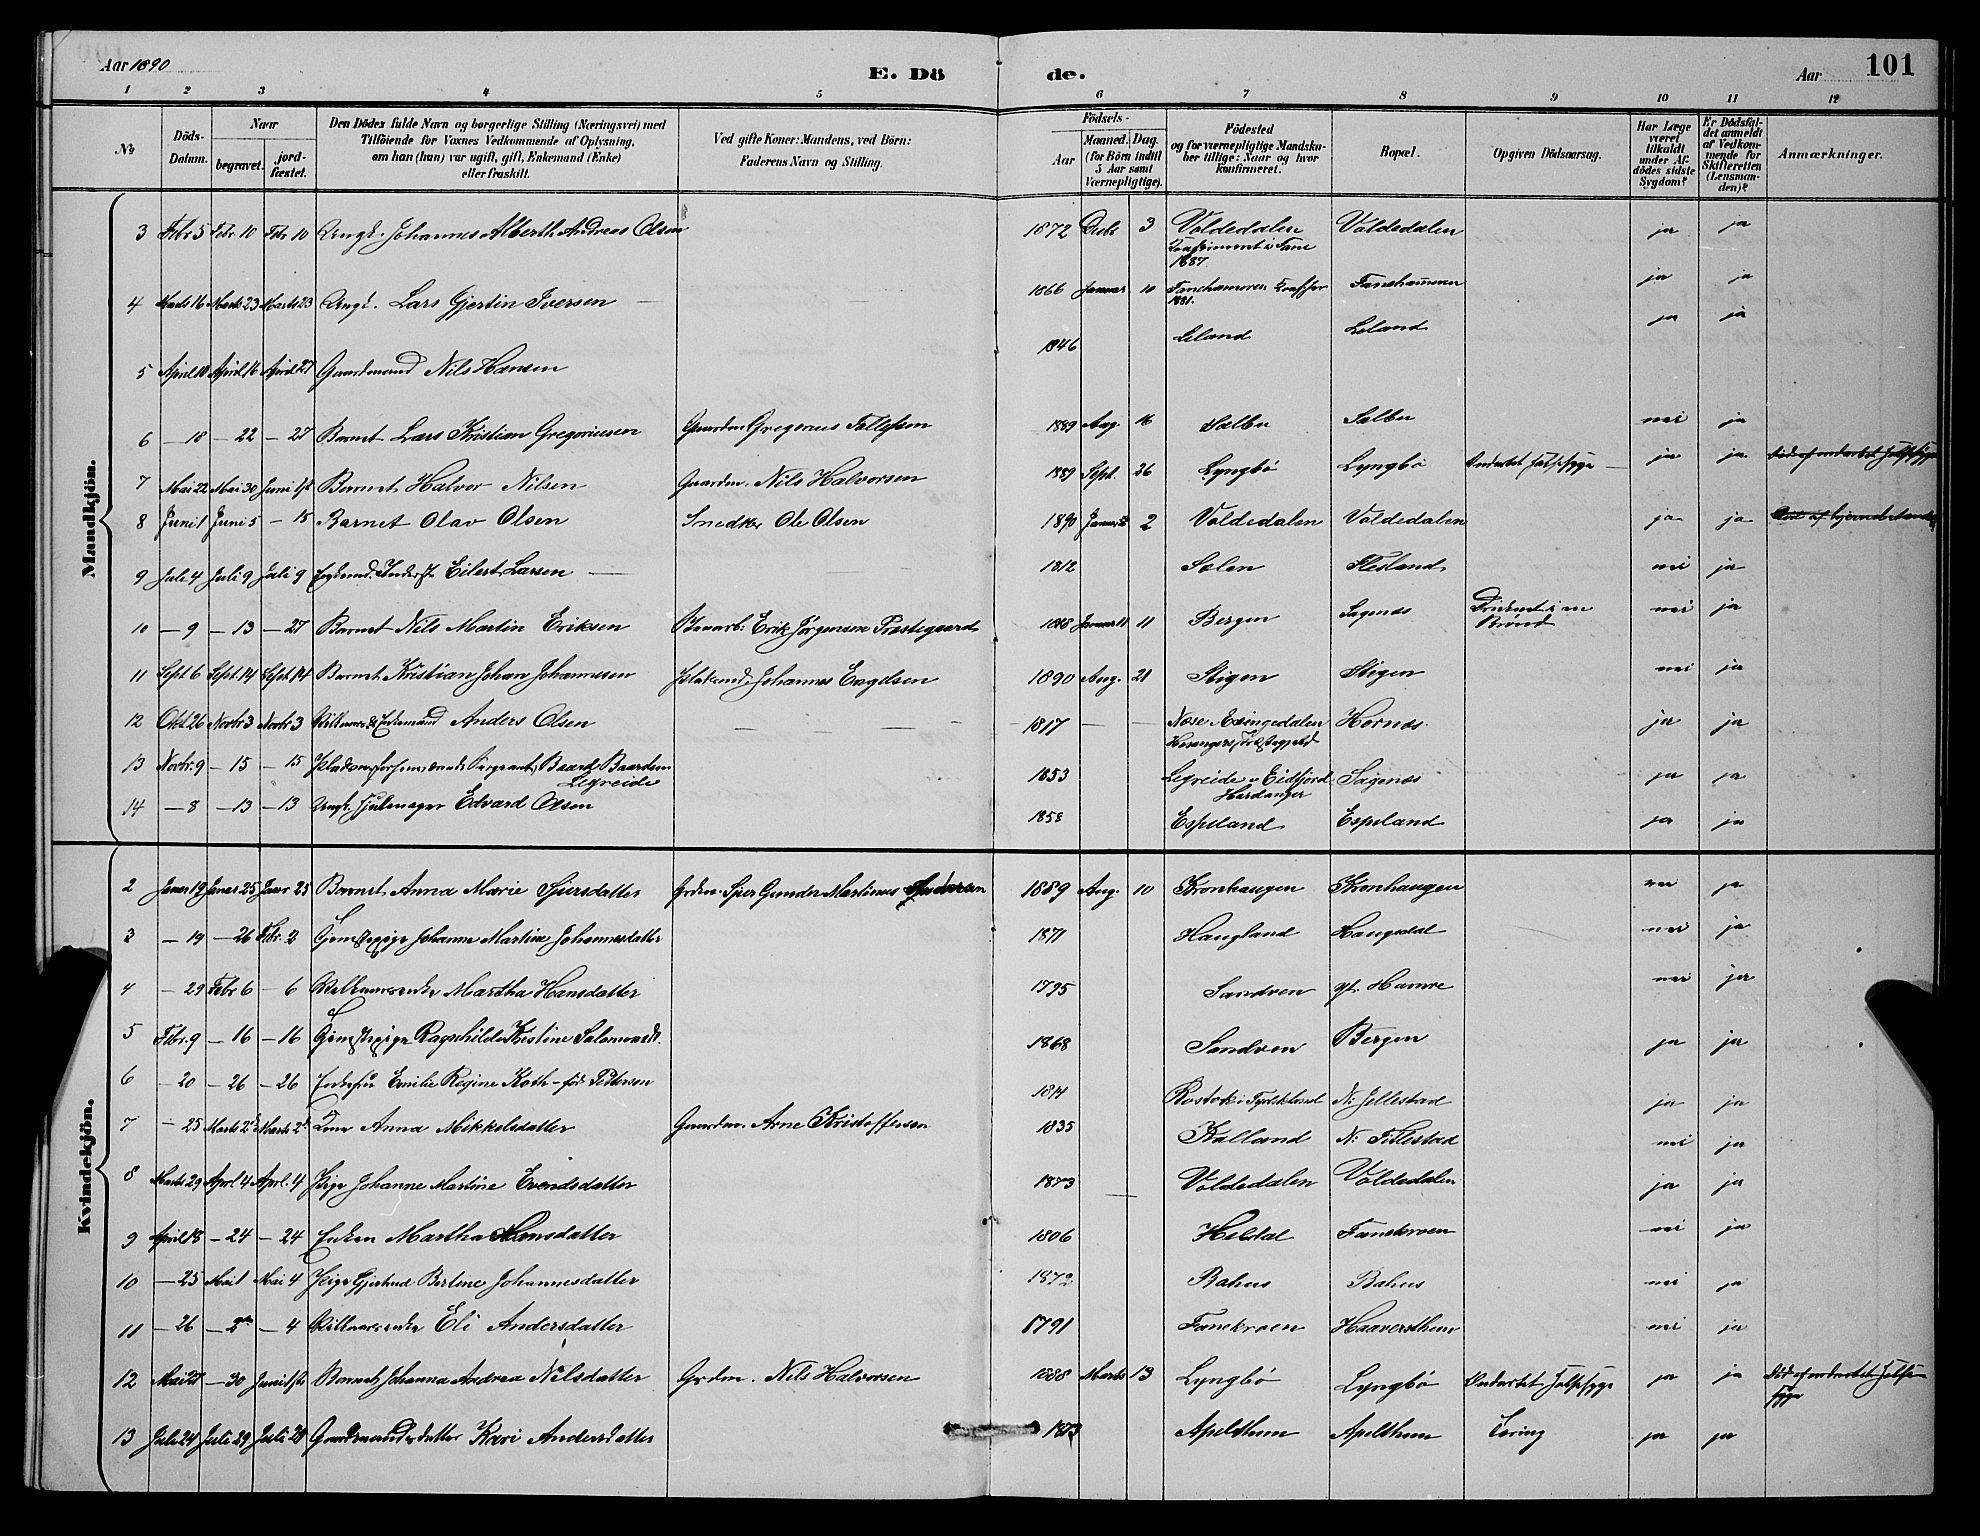 Aar 1890 E. Dö de. Aar 101
1 2 3 4 5 6 7 8 9 10 11 12
№ Döds-Datum. Naar begravet. jordfæstet. Den Dödes fulde Navn og borgerlige Stilling (Næringsvei) med Tilföiende for Voxnes Vedkommende af Oplysning, om han (hun) var ugift, gift, Enkemand (Enke) eller fraskilt. Ved gifte Koner: Mandens, ved Börn: Faderens Navn og Stilling. Födsels- Aar Maaned. Dag. (for Börn indtil 5 Aar samt Værnepligtige). Födested og for værnepligtige Mandskaber tillige: Naar og hvor konfirmeret. Bopæl. Opgiven Dödsaarsag. Har Læge været tilkaldt under Afdödes sidste Sygdom? Er Dödsfaldet anmeldt af Vedkommende for Skifteretten (Lensmanden)? Anmærkninger.
Mandkjön.
3 Febr 5 Febr 10 Fbr. 10 Ungk. Johannes Alberth Andreas Olsen 1872 Decbr 3 Voldedalen Voldedalen ja ja
Konfirmeret i Fane
1887
4 Marts 16 Marts 23 Marts 23 Ungk. Lars Gjertin Iversen — 1866 Januar 10 Fanehammeren Konf. for Fanehammeren ja ja
1881.
5 April 10 April 16 April 27 Gaardmand Nils Hansen 1846 Leland Leland ja ja
6 — 18 — 22 — 27 Barnet Lars Kristian Gregoriusen Gaardm. Gregorius 1889 Aug. 16 Sælbu Sælbu nei ja
7 Mai 22 Mai 30 Juni 1ste Barnet Halvor Nilsen Gaardm. Nils Halvorsen 1889 Sept. 26 Lyngbö Lyngbö Ondartet Halssyge — ja ja Död af ondartet Halssyge
8 Juni 1 Juni 5 — 15 Barnet Olav Olsen Snedker Ole Olsen 1890 Januar 2 Voldedalen Voldedalen ja ja
9 Juli 4 Juli 9 Juli 9 Inderst Eilert Larsen — 1812 Solen Flesland nei ja
10 — 9 — 13 — 27 Barnet Nils Martin Eriksen Erik Jörgensen Præstegaard 1888 Januar 11 Bergen Sagenæs Druknet i en nei ja
Brönd
11 Sept 6 Sept 14 Sept 14 Barnet Kristian Johan Johannesen Johannes Engelsen 1890 Aug. 21 Stigen Stigen nei ja
12 Okt. 26 Novbr 3 Novbr 3 Enkemand Anders Olsen — — — 1817 — — Nose i Exingedalen Hornæs. ja ja
Hosangers Præstegjeld
13 Novbr. 9 — 15 — 15 Sergeant Baard Baardsen 1853 Legreide i Eidfjord Sagenæs ja ja
Legreide Hardanger
14 — 8 — 13 — 13 Ungk. Hjulmager Edvard Olsen 1858 Espeland Espeland ja ja
Kvindekjön.
2 Januar 19 Januar 25 Januar 25 Barnet Anna Marie Sjursdatter Grdm. Sjur Gunder Martinus Andersen 1889 Aug. 10 Kronhaugen Kronhaugen nei ja
3 — 19 — 26 Febr. 2 Tjenstepige Johanne Martine Johannesdatter 1871 Haugland Haugsdal nei ja
4 — 29 Febr 6 — 6 Martha Hansdatter 1795 Sandven yt. Hamre nei ja
5 Febr. 9 — 16 — 16 Tjenstepige Ragnhilde Kristine Salamonsdt. 1868 Sandven Bergen ja ja
6 — 20 — 26 — 26 Enkefru Emilie Regine Koth — föd Petersen 1814 Rostok i Tydskland N. Jellestad ja ja
7 — 25 Marts 2d Marts 2d Kone Anna Mikkelsdatter Gaardm. Arne Kristoffersen 1835 Kalland N. Tittestad nei ja
8 Marts 29 Aprl 4 Aprl. 4 Pige Johanne Martine Evendsdatter 1873 — Voldedalen Voldedalen ja ja
9 April 18 — 24 — 24 Enken Martha Hansdatter 1806 Hildal Fanekroen nei ja
10 — 25 Mai 1 Mai 4 Pige Gjertrud Bertine Johannesdatter 1872 Rahus Rahus nei ja
11 — 26 — 2den — 4 Eli Andersdatter 1791 Fanekroen Haaversthun nei ja
12 Mai 27 — 30 Juni 1ste Barnet Johanna Andrea Nilsdatter Grdm. Nils Halvorsen 1888 Marts 13 Lyngbö Lyngbö Ondartet Halssyge ja ja Död af ondartet Halssyge
13 Juli 24 Juli 29 Juli 29 Gaardmandsdatter Kari Andersdatter 1873 Apelthun Apelthun Tæring ja ja